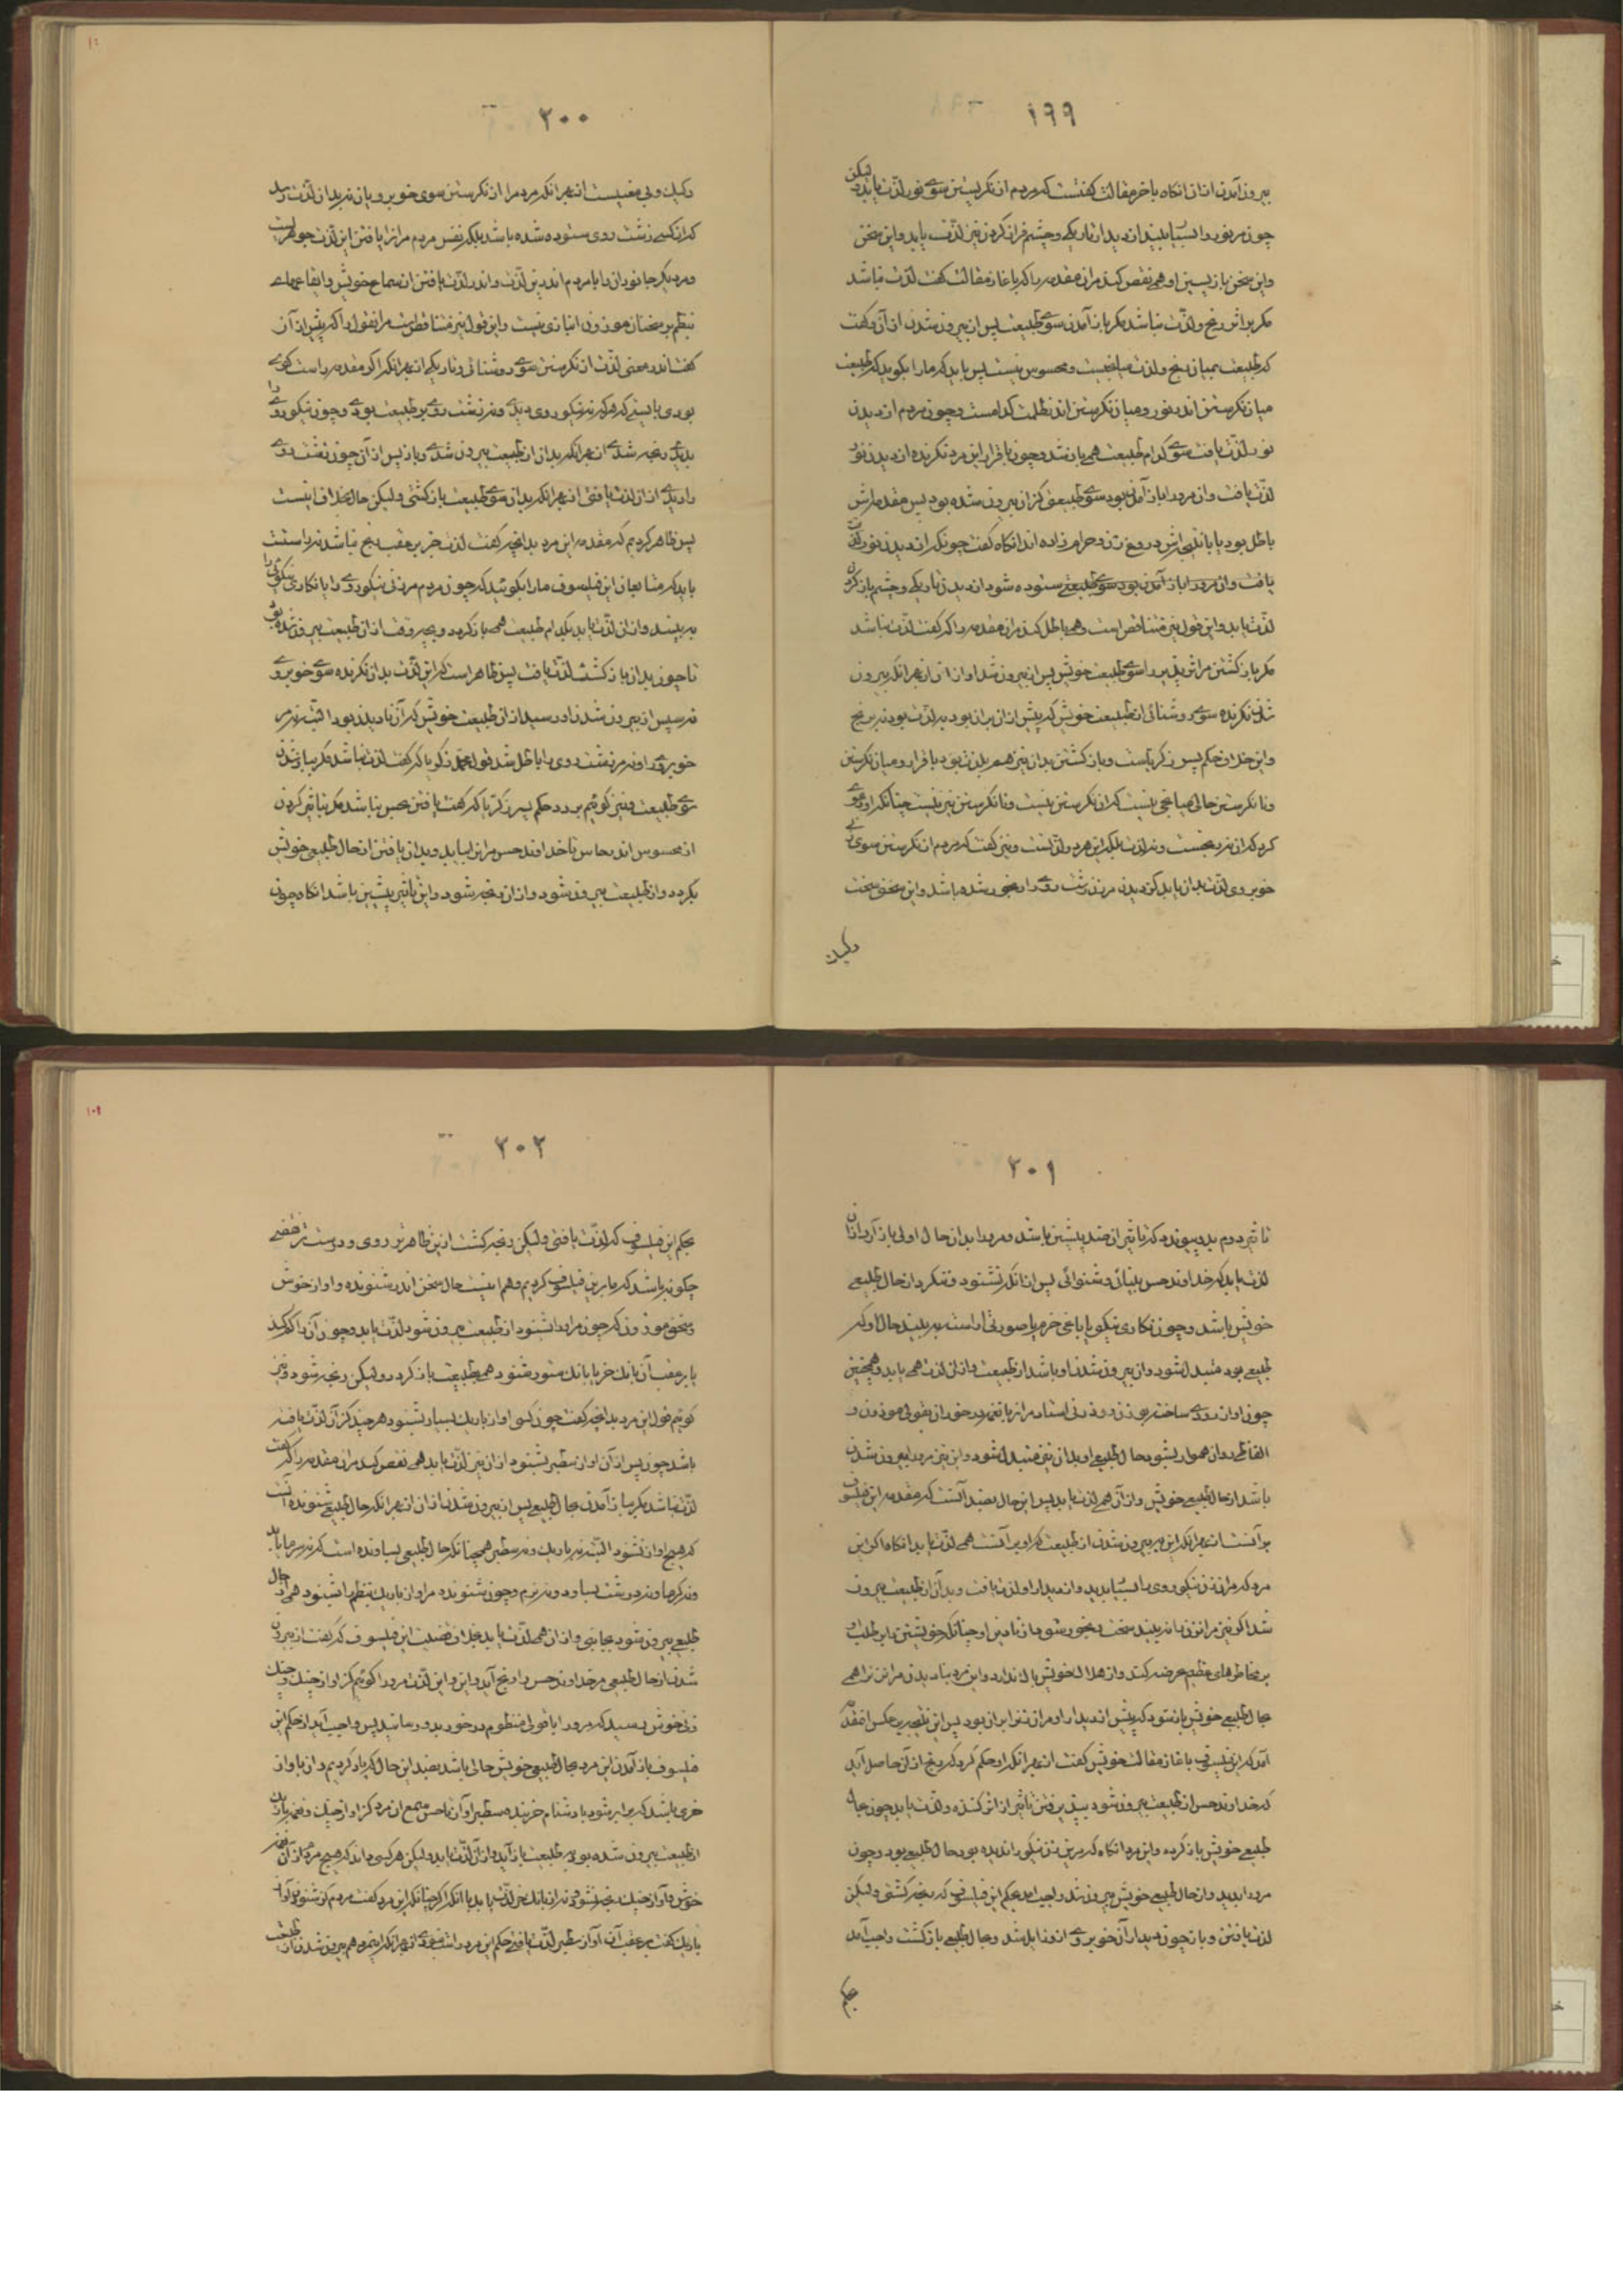 ۱۹۹
بیرون آمدن ازان انکاه باخر مقالت کفتست که مردم از نکریستن سوی نور لذت یابد ولیکن
چون مر نور را بسیار بیند از دیدار تاریکی و چشم فراز کردن نیز لذت یابد و این سخن
و این سخن باز پسین او همی نقض کند مران مقدمه را که باغاز مقالت کفت لذت نباشد
مکر بر اثر رنج و لذت نباشد مکر باز آمدن سوی طبیعت پس از بیرون شدن ازان و کفت
که طبیعت بمیان رنج و لذت میانجیست و محسوس نیست پس باید که مارا بکوید که طبیعت
میان نکرستن اندر نور و میان نکرستن اندر ظلمت کدامست و چون مردم از دیدن
نور لذت یافت سوی کدام طبیعت همی باز شد و چون باقرار این مرد نکرنده از دیدن نور
لذت یافت و ان مرورا باز آمدن بود سوی طبیعتی کزان بیرون شده بود پس مقدماتش
باطل بود یا بانتیجهاش دروغ زن و حرام زاده اند انکاه کفت چو نکرنده از دیدن نور لذت
یافت و ان مرورا باز آمدن بود سوی طبیعتی ستوده شود از دیدن تاریکی و چشم باز کردن
لذت یابد و این قول نیز متناقض است و همی باطل کند مران مقدمه را که کفت لذت نباشد
مکر باز کشتن مر اثر پذیر را سوی طبیعت خویش پس از بیرون شدن او ازان از بهر انکه بیرون
شدن نکرنده سوی روشنائی از طبیعت خویش که پیش ازان بران بود به لذت بود نه برنج
و این خلاف حکم پسر زکریاست و باز کشتن بدان نیز هم بلذت بود باقرار او و میان نکرستن
و نا نکرستن حالی میانجی نیست که ان نکرستن نیست و نا نکرستن نیز نیست چنانکه او دعوی
کرد که ان نه رنجست و نه لذت بلکه این هر دو لذتست و نیز کفت که مردم از نکرستن سوی
خوبروی لذت بدان یابد کز دیدن مر زشت روی را رنجور شده باشد و این سخن سخت
رکیک
۲۰۰
رکیک و بی معنیست از بهر انکه مردم را از نکرستن سوی خوبرویان نه بدان لذت رسد
که از کسی زشت روی ستوده شده باشد بلکه نفس مردم مرانرا یافتن این لذت جوهریست
و مر دیکر جانوران را با مردم اندرین لذت و اندر لذت یافتن از سماع خویش و ایقاعهای
بنظم بر سخنان موزون انبازی نیست و این قول نیز متناقض است مرانقول را که پیش ازان
کفت اندر معنی لذت از نکرستن سوی روشنائی و تاریکی از بهر انکه اکر مقدمه راست کوی
بودی بایستی که هرکه نه نیکوروی دیدی و نه زشت روی بر طبیعت بودی و چون نیکوروی را
بدیدی رنجه شدی از بهر انکه بدان از طبیعت بیرون شدی و باز پس ازان چون زشت روی
را دیدی ازان لذت یافتی از بهر انکه بدان سوی طبیعت باز کشتی ولیکن حال بخلاف اینست
پس ظاهر کردیم که مقدمه این مرد بدانچه کفت لذت جز بر عقب رنج نباشد نه راستست
باید که متابعان این فیلسوف مارا بکویند که چون مردم مر زنی نیکوروی را یا نکاری نیکو را
به بیند و ازان لذت یابد بکدام طبیعت همی باز کردد و بچه وقت ازان طبیعت بیرون شده بود
تا چون بدان باز کشت لذت یافت پس ظاهر است که این لذت بدان نکرنده سوی خوبروی
نه سپس از بیرون شدن او رسید ازان طبیعت خویش که آن نادیدن بود البته نه مر
خوبروی را و نه مر زشت روی را باطل شد قول محمد زکریا که کفت لذت نباشد مکر بباز شدن
سوی طبیعت و نیز کوئیم بر رد حکم پسر زکریا که کفت یافتن بحس نباشد مکر بتاثیر کردن
از محسوس اندر حاس تا خداوند حس مر این لیا یابد و بدان یافتن از حال طبیعی خویش
بکردد و از طبیعت بیرون شود و ازان رنجه شود و این تاثیر پیشین باشد انکاه چون
۲۰۱
تاثیر دوم بدو پیوندد که تاثیر ازان ضد پیشین باشد و مرورا بدان حال اولی باز آرد ازان
لذت یابد که خداوند حس بینائی و شنوائی پس ازانکه نشنود و ننکرد از حال طبیعی
خویش باشد و چون نکاری نیکو یا باغی خرم یا صورتی اراسته به بیند حال او که
طبیعی بود متبدل شود و ان بیرون شدن او باشد از طبیعت و ازان لذت همی یابد و همچنین
چون اواز رودی ساخته بوزن و زدنی استاد مرانرا با نغمه درخور ان بقولی موزون و
الفاظی روان هموار بشنود حال طبیعی او بدان نیز متبدل شود و این نیز مرورا بیرون شدن
باشد از حال طبیعی خویش و ازان همی لذت یابد پس این حال بضد آنست که مقدمه این فیلسوف
بر آنست از بهر انکه این هر بیرون شدن از طبیعت که او بر آنست همی لذت یابد انکاه اکر این
مرد که مر ان زن نیکوروی را بسیار بدید و از دیدار او لذت یافت و بدان از طبیعت بیرون
شد اکر نیز مر ان زن را نه بیند سخت رنجور شود از نادیدن او چنانکه خویشتن را بر طلب او
بر مخاطرهای عظیم عرضه کند و از هلاک خویش باک ندارد و این مرد بنا دیدن مر ان زن را همی
بحال طبیعی خویش باز شود که پیش از دیدار او مر ان زن را بران بود پس این نتیجه بر عکس ان مقدمه
آمد که این فیلسوف باغاز مقالت خویش کفت از بهر انکه او حکم کرد که رنج ازان حاصل آید
که خداوند حس از طبیعت بیرون شود بپذیرفتن تاثیر از اثر کننده و لذت یابد چون بحال
طبیعی خویش باز کردد و این مرد انکاه که مر این زن نیکو را ندیده بود بحال طبیعی بود و چون
مرورا بدید و از حال طبیعی خویش بیرون شد واجب آمد بحکم این فیلسوف که رنجه کشتی ولیکن
لذت یافتن و باز چون دیدار آن خوبروی ازو زایل شد و بحال طبیعی باز کشت واجب آمد
بحکم
۲۰۲
بحکم این فیلسوف که لذت یافتی ولیکن رنجه کشت ازین ظاهرتر ردی و درست تر نقضی
چکونه باشد که ما برین فیلسوف کردیم و هم اینست حال سخن اندر شنونده و اواز خوش
و سخن موزون که چون مرانرا بشنود از طبیعت بیرون شود لذت یابد و چون آن را کم کند
یا بر عقب آن بانک خر یا بانک ستور شنود همی بطبیعت باز کردد ولیکن رنجه شود و نیز
کوئیم قول این مرد بدانچه کفت چون کسی اواز باریک بسیار بشنود هر چند کزان لذت یافته
باشد چون پس ازان اواز سطبر بشنود ازان نیز لذت یابد همی نقض کند مران مقدمه را که کفت
لذت نباشد مکر بباز آمدن بحال طبیعی پس از بیرون شدن ازان از بهر انکه حال طبیعی شنونده آنست
که هیچ اواز نشنود البته نه باریک و نه سطبر همچنانکه حال طبیعی بساونده است که نه سرما یابد
و نه کرما و نه درشت بساود و نه نرم و چون شنونده مر اواز باریک بنظم را بشنود همی از حال
طبیعی بیرون شود بجانبی و ازان همی لذت یابد بخلاف حکم این فیلسوف که کفت از بیرون
شدن از حال طبیعی مر خداوند حس را رنج آید و این و این لذت مرورا کوئیم کز اواز چنک و چنک
زنی خوش رسید که مرورا با قولی منظوم درخورد بدو رسانید پس واجب آید از حکم این
فیلسوف باز آمدن این مرد بحال طبیعی خویش حالی باشد بضد این حال که یاد کردیم و ان باواز
خری باشد که برابر شود با دشنام خر بنده سطبر اواز تا حس سمع ان مرد کز اواز چنک و نغمه باریک
از طبیعت بیرون شده بود بر طبیعت باز آید و ازان لذت یابد ولیکن هر کسی داند که هیچ مردم ازان نغمه
خوش و آواز چنک رنجه نشود و نه ازان بانک خر لذت یابد با انکه اکر چنانکه این مرد کفت مردم کز شنودن آواز
باریک کفت بر عقب آن آواز سطبر لذت یافتی حکم این مرد راست نبودی از بهر انکه این مردم هم بیرون شدن از طبیعت